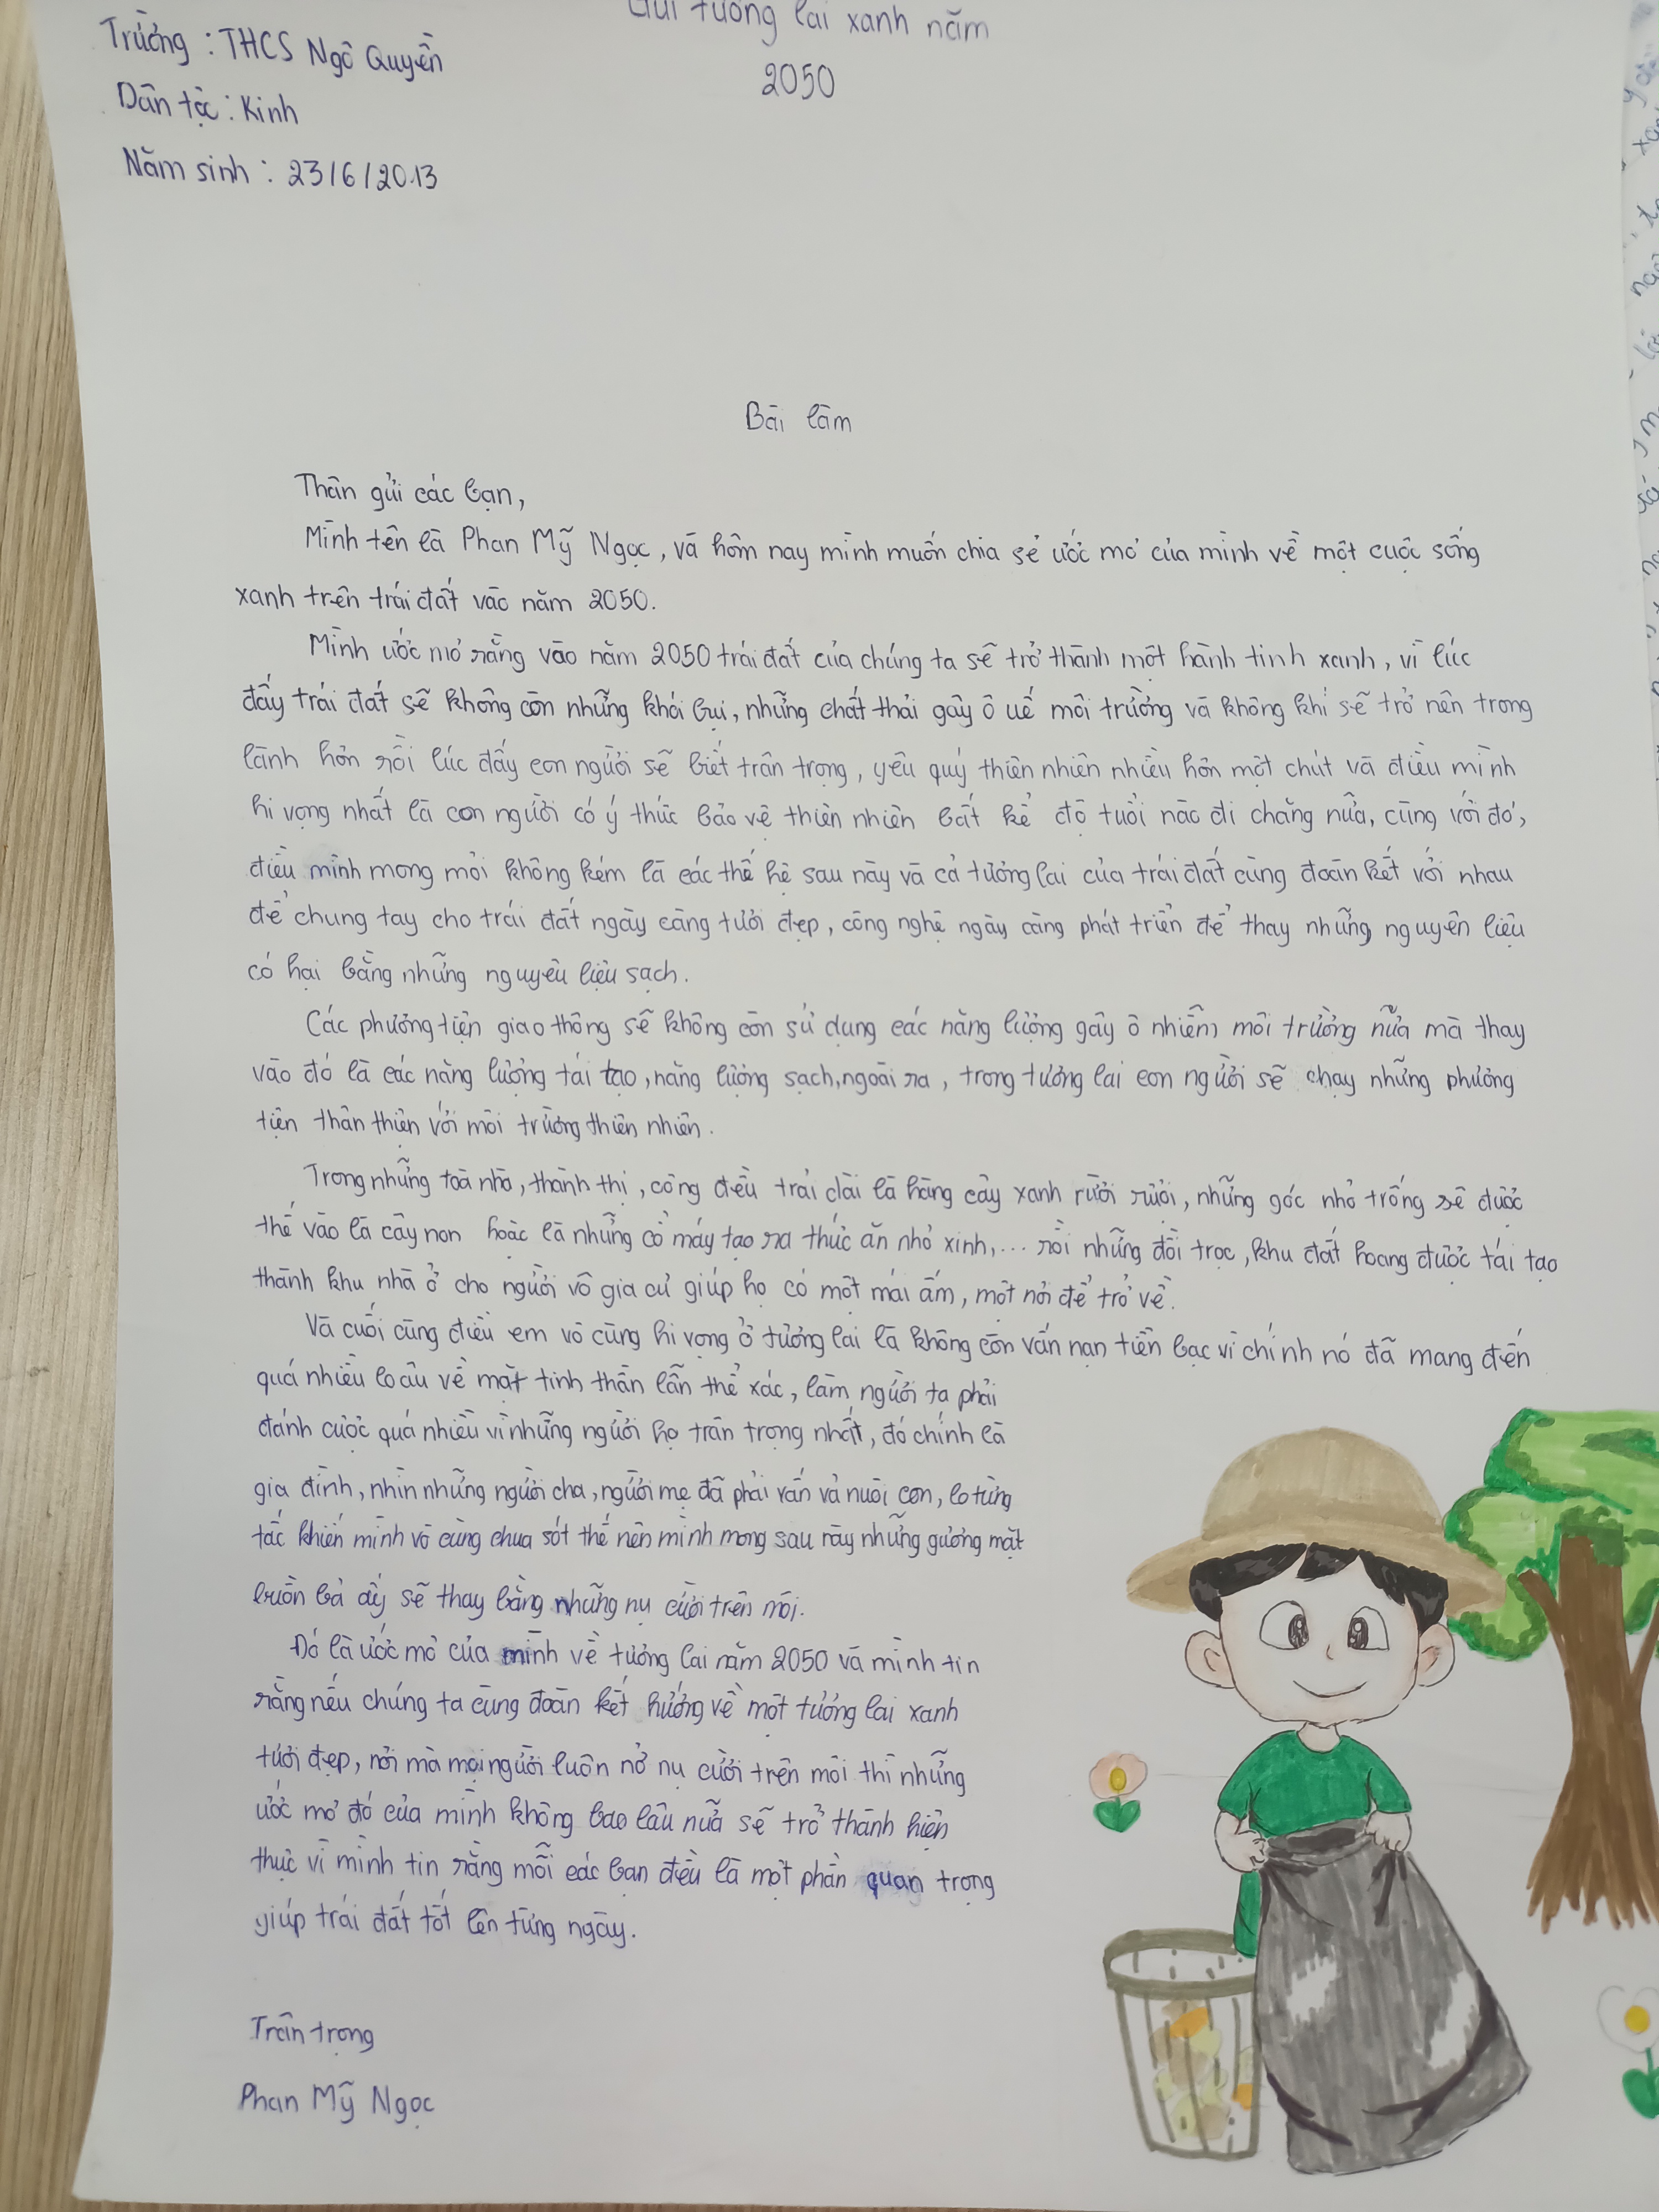 Gửi tương lai xanh năm
2050
Trường : THCS Ngô Quyền
Dân tộc : Kinh
Năm sinh : 23/6/2013
Bài làm
Thân gửi các bạn,
Mình tên là Phan Mỹ Ngọc, và hôm nay mình muốn chia sẻ ước mơ của mình về một cuộc sống
xanh trên trái đất vào năm 2050.
Mình ước mơ rằng vào năm 2050 trái đất của chúng ta sẽ trở thành một hành tinh xanh, vì lúc
đấy trái đất sẽ không còn những khói bụi, những chất thải gây ô uế môi trường và không khí sẽ trở nên trong
lành hơn rồi lúc đấy con người sẽ biết trân trọng, yêu quý thiên nhiên nhiều hơn một chút và điều mình
hi vọng nhất là con người có ý thức bảo vệ thiên nhiên bất kể độ tuổi nào đi chăng nữa, cùng với đó,
điều mình mong mỏi không kém là các thế hệ sau này và cả tương lai của trái đất cùng đoàn kết với nhau
để chung tay cho trái đất ngày càng tươi đẹp, công nghệ ngày càng phát triển để thay những nguyên liệu
có hại bằng những nguyên liệu sạch.
Các phương tiện giao thông sẽ không còn sử dụng các năng lượng gây ô nhiễm môi trường nữa mà thay
vào đó là các năng lượng tái tạo, năng lượng sạch, ngoài ra, trong tương lai con người sẽ chạy những phương
tiện thân thiện với môi trường thiên nhiên.
Trong những toà nhà, thành thị, cộng điều trải dài là hàng cây xanh rười rượi, những góc nhỏ trống sẽ được
thế vào là cây non hoặc là những cổ máy tạo ra thức ăn nhỏ xinh,... rồi những đồi trọc, khu đất hoang được tái tạo
thành khu nhà ở cho người vô gia cư giúp họ có một mái ấm, một nơi để trở về.
Và cuối cùng điều em vô cùng hi vọng ở tương lai là không còn vấn nạn tiền bạc vì chính nó đã mang đến
quá nhiều lo âu về mặt tinh thần lẫn thể xác, làm người ta phải
đánh cược quá nhiều vì những người họ trân trọng nhất, đó chính là
gia đình, nhìn những người cha, người mẹ đã phải vấn vả nuôi con, lo từng
tấc khiến mình vô cùng chua sót thế nên mình mong sau này những gương mặt
buồn bả ấy sẽ thay bằng những nụ cười trên môi.
Đó là ước mơ của mình về tương lai năm 2050 và mình tin
rằng nếu chúng ta cùng đoàn kết hướng về một tương lai xanh
tươi đẹp, nơi mà mọi người luôn nở nụ cười trên môi thì những
ước mơ đó của mình không bao lâu nữa sẽ trở thành hiện
thực vì mình tin rằng mỗi các bạn điều là một phần quan trọng
giúp trái đất tốt lên từng ngày.
Trân trọng
Phan Mỹ Ngọc